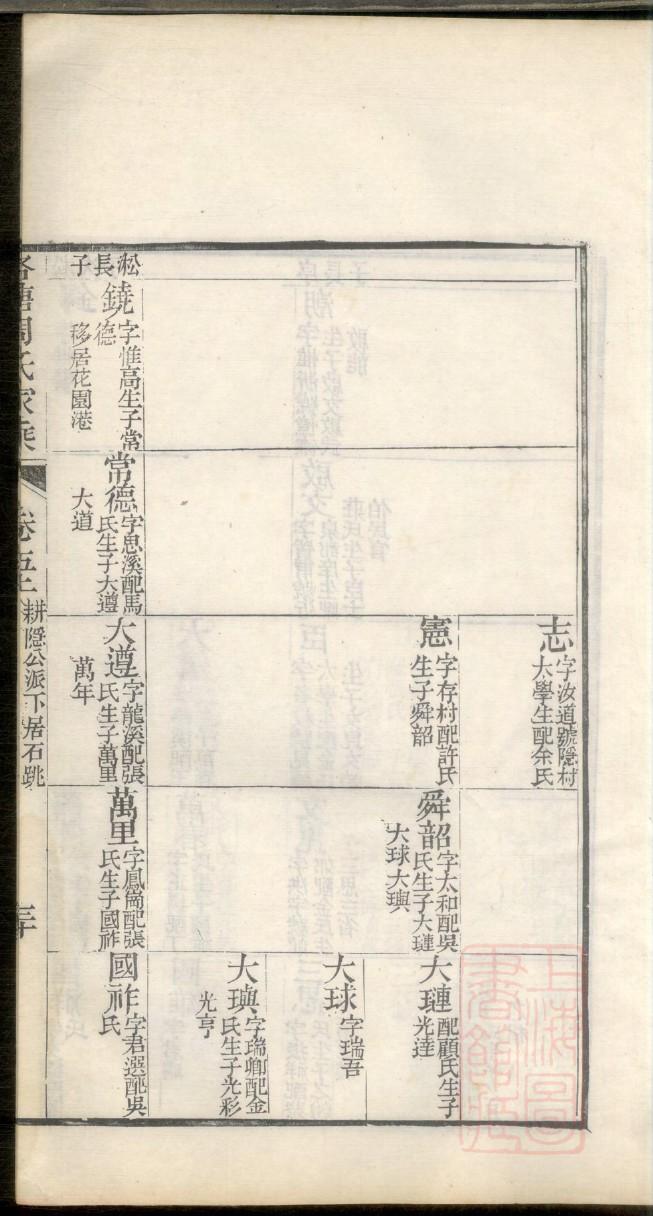 志
字汝道號隱村
太學生配余氏
憲
字存村配許氏
生子舜韶
舜韶
字太和配吳
氏生子大璉
大球大璵
大璉
配顧氏生子
光達
大球
字瑞吾
大璵
字瑞卿配金
氏生子光彩
光亨
淞長子
鐃
字惟高生子常
德
移居花園港
常德
字思溪配馬
氏生子大遵
大道
大遵
字龍溪配張
氏生子萬里
萬年
萬里
字鳳崗配張
氏生子國祚
國祚
字君選配吳
氏
周氏家乘
卷五
耕隱公派下居石跳
上海圖書館藏